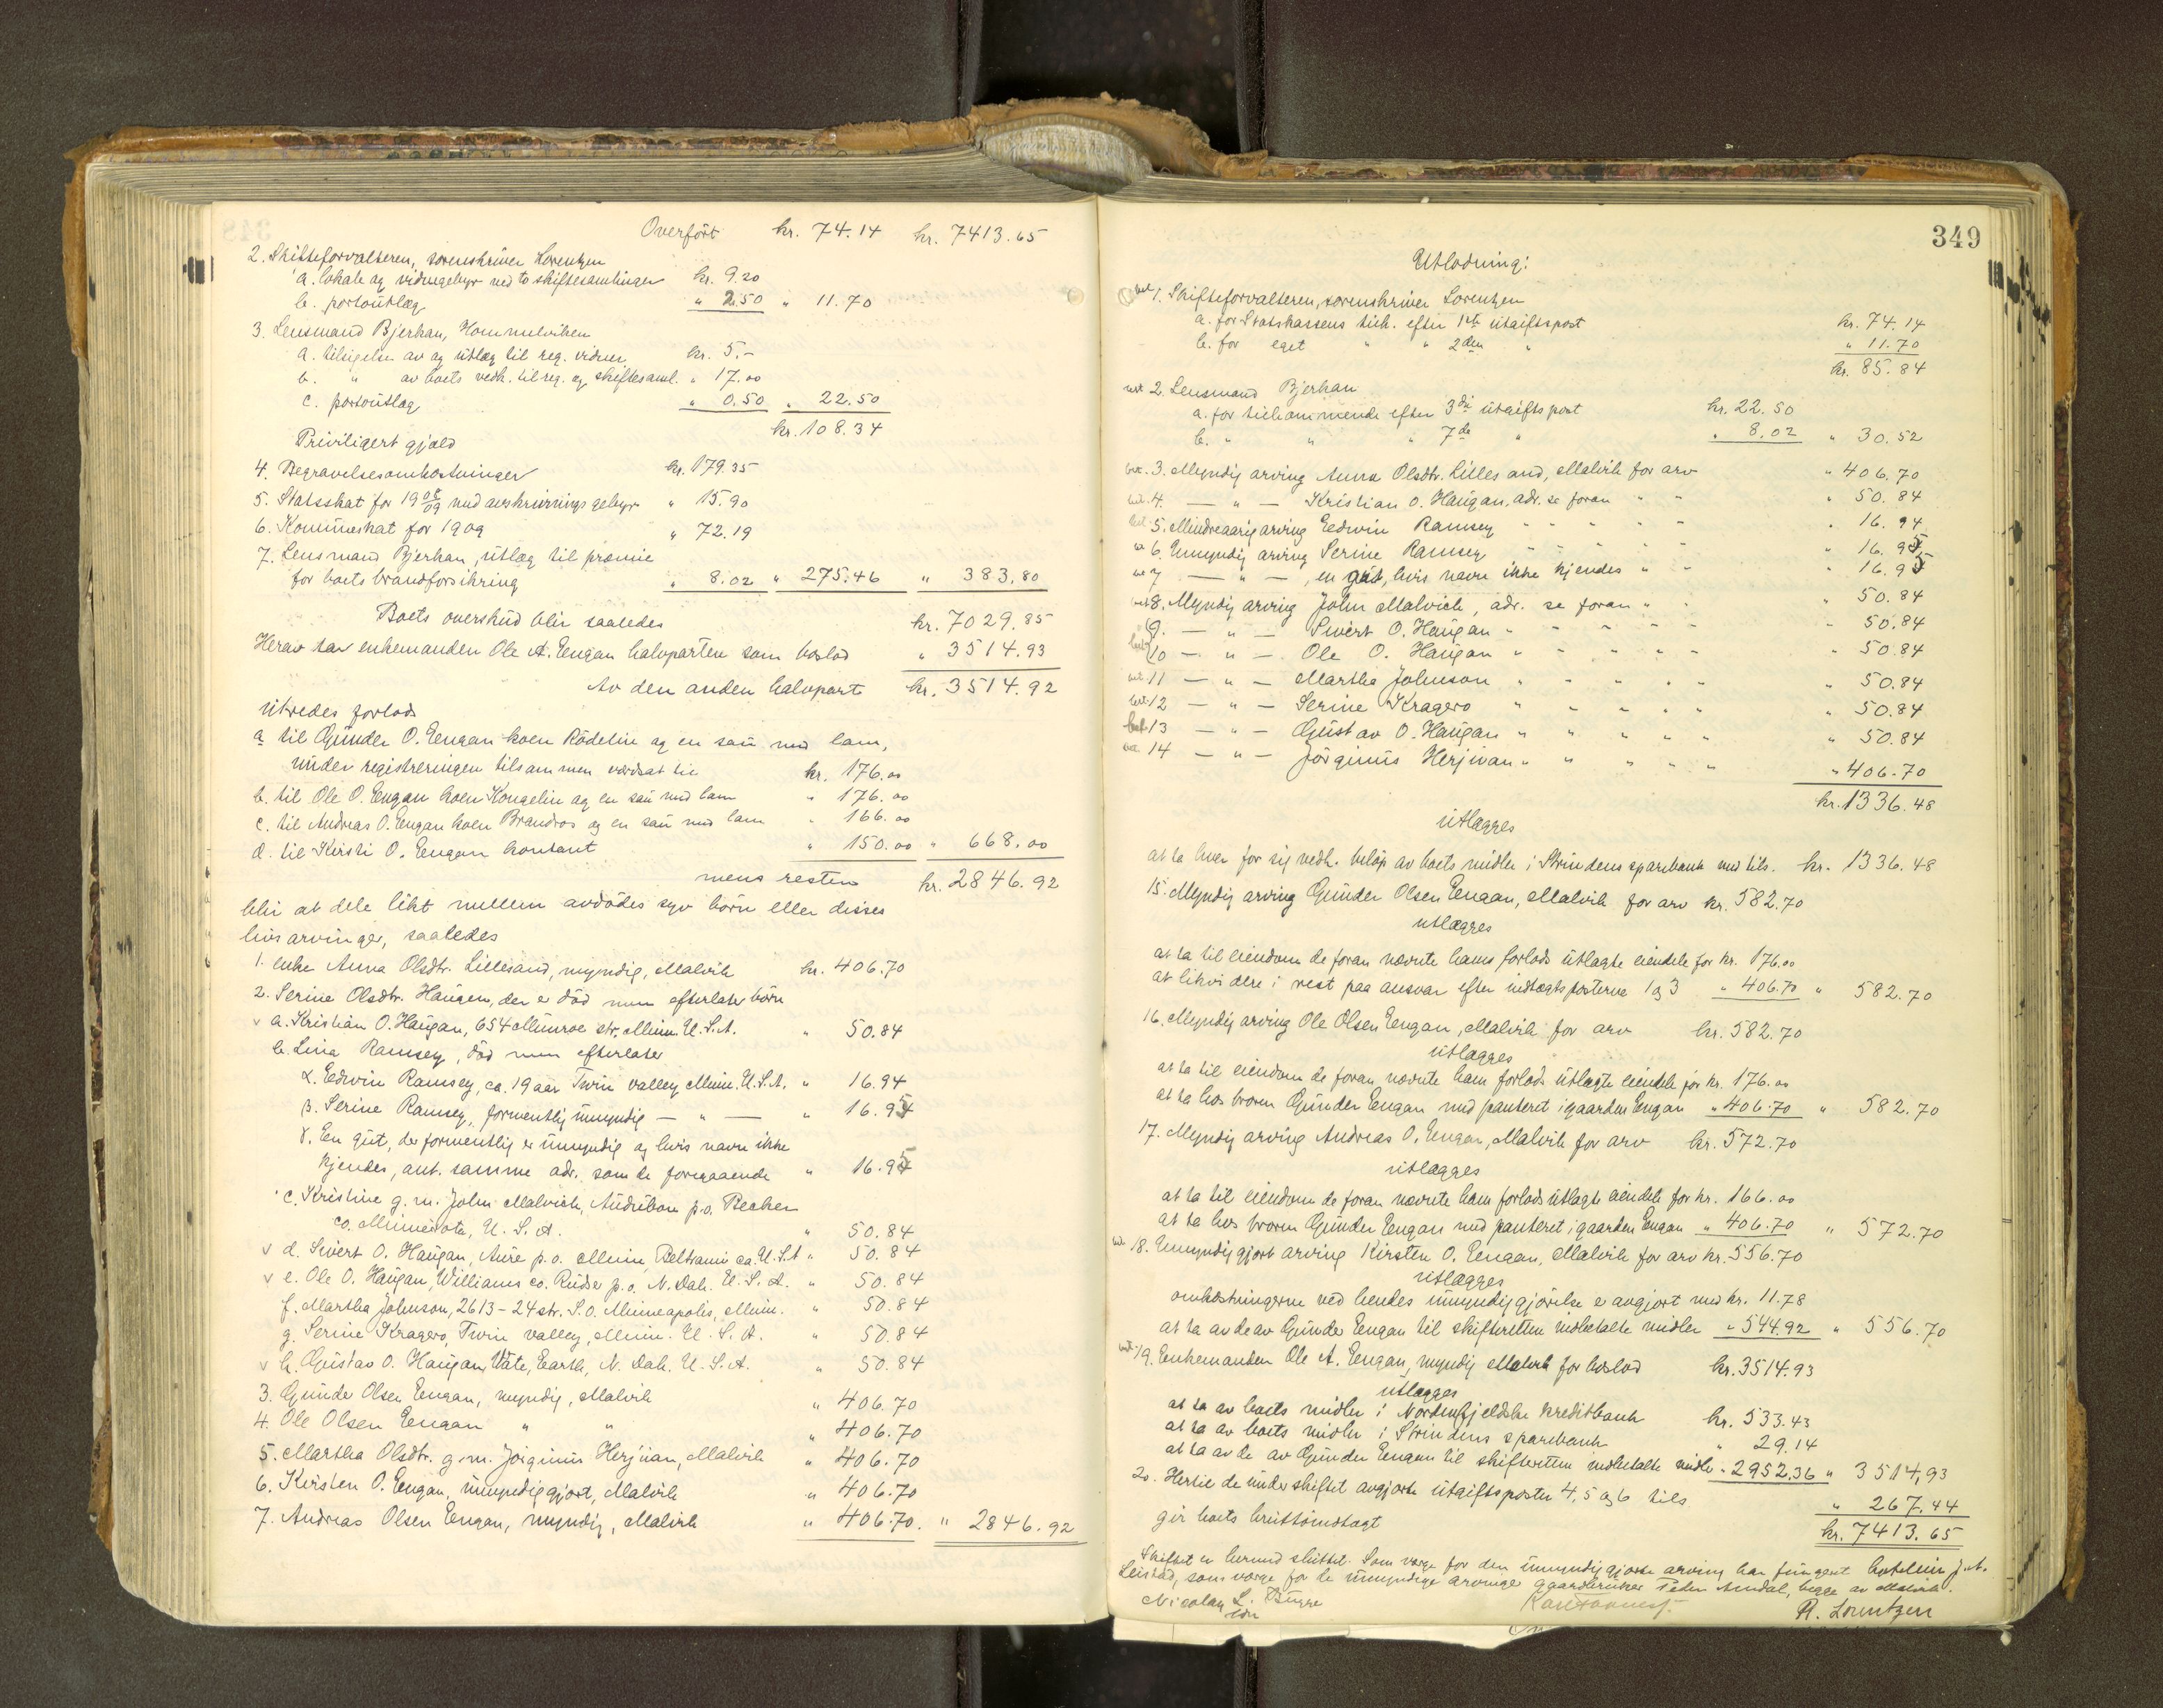 Overført kr. 74.14 kr. 7413.65
2. Skifteforvalteren, sorenskriver Lorentzen
a. lokale og vidnegebyr ved to skiftesamlinger kr. 9.20
b. portoutlæg " 2.50 " 11.70
3. Lensmand Bjerkan, Hommelviken
a. tilsigelse av og utlæg til reg. vidner kr. 5.-
b. " av boets vedk. til reg. og skiftesaml. " 17.00
c. portoutlæg " 0.50 " 22.50
kr. 108.34
Priviligert gjæld
4. Begravelsesomkostninger kr. 179.35
5. Statsskat for 1908/09 med avskrivningsgebyr " 15.90
6. Kommuneskat for 1909 " 72.19
7. Lensmand Bjerkan, utlæg til præmie
for boets brandforsikring " 8.02 " 275.46 " 383.80
Boets overskud blir saaledes kr. 7029.85
Herav tar enkemanden Ole A. Engan halvparten som boslod " 3514.93
Av den anden halvpart kr. 3514.92
utredes forlods
a til Gunder O. Engan koen Rødelin og en sau med lam,
under registreringen tilsammen værdsat til kr. 176.00
b. til Ole O. Engan koen Kongelin og en sau med lam " 176.00
c. til Andreas O. Engan koen Brandros og en sau med lam " 166.00
d. til Kirsti O. Engan kontant " 150.00 " 668.00
mens resten kr. 2846.92
blir at dele likt mellem avdødes syv børn eller disses
livsarvinger, saaledes
1. enke Anna Olsdtr. Lillesand, myndig, Malvik kr. 406.70
2. Serine Olsdtr. Haugen, der er død men efterlater børn
v a. Kristian O. Haugan, 654 Munroe str. Minn. U.S.A. " 50.84
b. Lina Ramsey, død men efterlater
α. Edwin Ramsey, ca. 19 aar Twin valley Minn. U.S.A. " 16.94
β. Serine Ramsey, formentlig umyndig — " — " 16.95
γ. En gut, der formentlig er umyndig og hvis navn ikke
kjendes, ant. samme adr. som de foregaaende " 16.95
c. Kristine g. m. John Malvich, Audubon p.o. Becker
co. Minnesota, U.S.A. " 50.84
v d. Sivert O. Haugan, Aure p.o. Minn. Beltrami co. U.S.A " 50.84
v e. Ole O. Haugan, Williams co. Ruder p.o. N. Dak. U.S.A. " 50.84
f. Martha Johnson, 2613 - 24 str. S.O. Minneapolis, Minn. " 50.84
g. Serine Kragero, Twin valley, Minn. U.S.A. " 50.84
v h. Gustav O. Haugan, Väte, Earth, N. Dak. U.S.A. " 50.84
3. Gunder Olsen Engan, myndig, Malvik " 406.70
4. Ole Olsen Engan " " " 406.70
5. Martha Olsdtr. g.m. Jørginus Herjuan, Malvik " 406.70
6. Kirsten O. Engan, umyndiggjort, Malvik " 406.70
7. Andreas Olsen Engan, myndig, Malvik " 406.70. " 2846.92
349
Utlodning:
1. Skifteforvalteren, sorenskriver Lorentzen
a. for Statskassens tilk. efter 1ste utgiftspost kr. 74.14
b. for eget " " 2den " " 11.70
kr. 85.84
2. Lensmand Bjerkan
a. for tilkommende efter 3die utgiftspost kr. 22.50
b. " " " 7de " " 8.02 " 30.52
3. Myndig arving Anna Olsdtr. Lillesand, Malvik for arv " 406.70
4. — " — Kristian O. Haugan, adr. se foran " " " 50.84
5. Mindreaarig arving Edwin Ramsey " " " " " " 16.94
6. Umyndig arving Serine Ramsey " " " " " " 16.95
7 — " —, en gut, hvis navn ikke kjendes " " " 16.95
8. Myndig arving John Malvich, adr. se foran " " " 50.84
9. — " — Sivert O. Haugan " " " " " " 50.84
10 — " — Ole O. Haugan " " " " " " 50.84
11 — " — Martha Johnson " " " " " " 50.84
12 — " — Serine Kragero " " " " " " 50.84
13 — " — Gustav O. Haugan " " " " " " 50.84
14 — " — Jørginus Herjuan " " " " " " 406.70
kr. 1336.48
utlægges
at ta hver for sig vedk. beløp av boets midler i Strindens sparebank med tils. kr. 1336.48
15. Myndig arving Gunder Olsen Engan, Malvik for arv kr. 582.70
utlægges
at ta til eiendom de foran nævnte hans forlods utlagte eiendele for kr. 176.00
at likvidere i rest paa ansvar efter indtægtsposterne 1 og 3 " 406.70 " 582.70
16. Myndig arving Ole Olsen Engan, Malvik for arv kr. 582.70
utlægges
at ta til eiendom de foran nævnte ham forlods utlagte eiendele for kr. 176.00
at ta hos broren Gunder Engan med panteret i gaarden Engan " 406.70 " 582.70
17. Myndig arving Andreas O. Engan, Malvik for arv kr. 572.70
utlægges
at ta til eiendom de foran nævnte ham forlods utlagte eiendele for kr. 166.00
at ta hos broren Gunder Engan med panteret i gaarden Engan " 406.70 " 572.70
18. Umyndiggjort arving Kirsten O. Engan, Malvik for arv kr. 556.70
utlægges
omkostningerne ved hendes umyndiggjørelse er avgjort med kr. 11.78
at ta av de av Gunder Engan til skifteretten indbetalte midler " 544.92 " 556.70
19. Enkemanden Ole A. Engan, myndig Malvik for boslod kr. 3514.93
utlægges
at ta av boets midler i Nordenfjeldske kreditbank kr. 533.43
at ta av boets midler i Strindens sparebank " 29.14
at ta av de av Gunder Engan til skifteretten indbetalte midler " 2952,36 " 3514,93
20. Hertil de under skiftet avgjorte utgiftsposter 4, 5 og 6 tils " 267.44
gir boets bruttoindtægt kr. 7413.65
Skiftet er hermed sluttet. Som værge for den umyndiggjorte arving har fungert J. A.
Leistad, som værge for de umyndige arvinger gaardbruker Peter Aundal, begge av Malvik.
Nicolay L. Bugge
R. Lorentzen